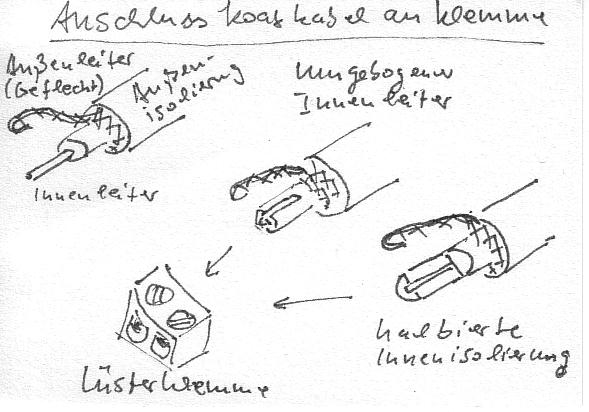 Anschluss Koaxkabel an Klemme
Außenleiter
(Geflecht)
Außen-
isolierung
Innenleiter
Umgebogener
Innenleiter
halbierte
Innenisolierung
Lüsterklemme